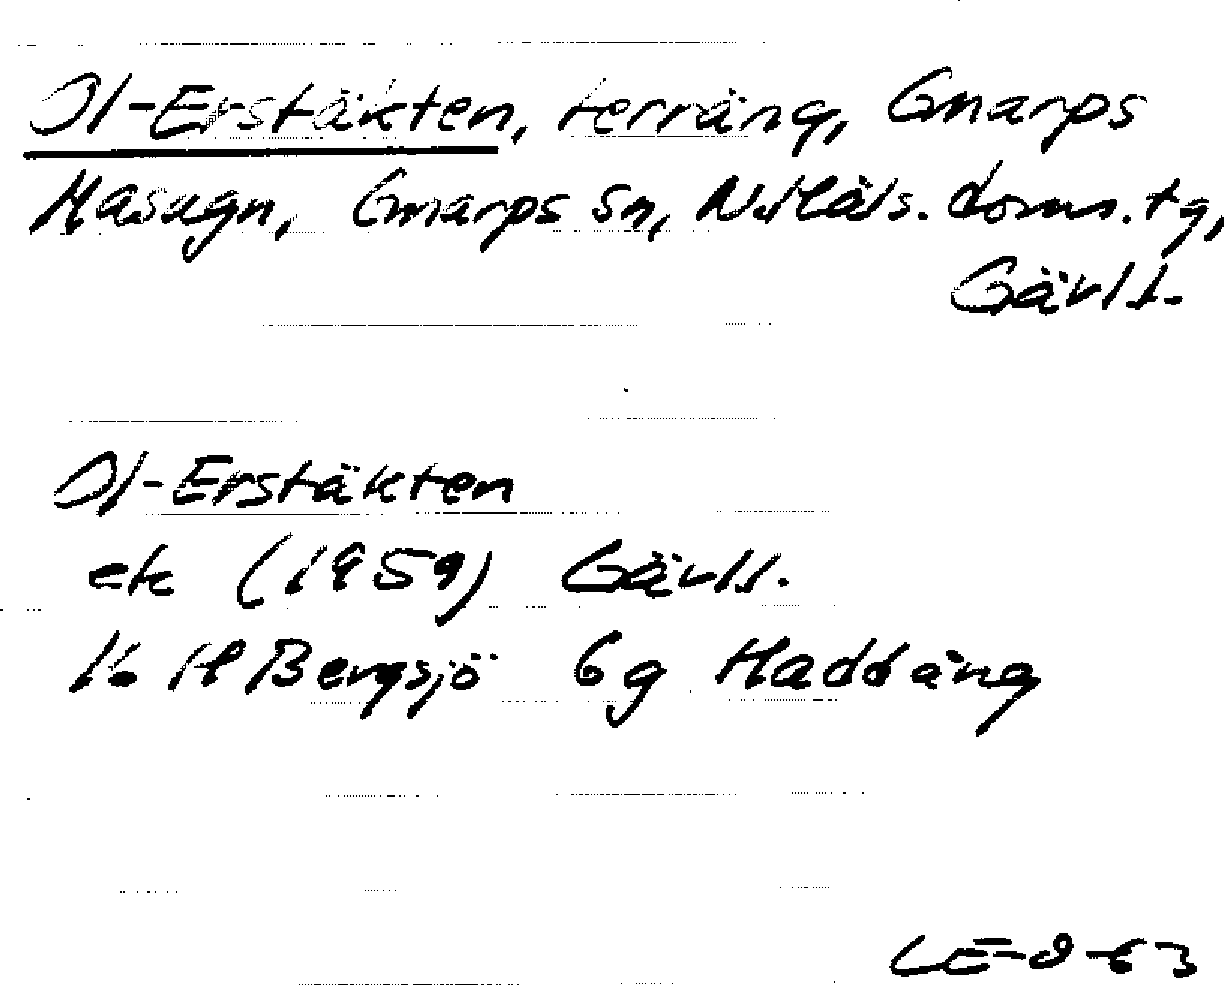 Ol-Erstäkten, terräng, Gnarps
Masugn, Gnarps sn, N. Häls. doms. tg,
Gävl l.
Ol-Erstäkten
ek (1959) Gävl l.
16 H Bergsjö 6g Haddäng
LE-8-63